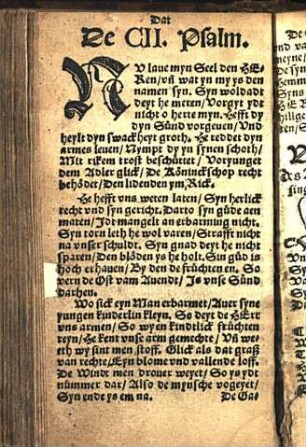 Dat
De CII. Psalm.
NU laue myn Seel den HE-
Ren/ vñ wat yn my ys den
namen syn. Syn woldadt
deyt he meren/ Vorgyt ydt
nicht o herte myn. Hefft dy
dyn Sünd vorgeuen/ Vnd
heylt dyn swackheyt groth. He reddet dyn
armes leuen/ Nympt dy yn synen schoth/
Mit rikem trost beschüttet/ Voryunget
dem Adler glick/ De Köninckschop recht
behödet/ Den lidenden ym Rick.
He hefft vns weten laten/ Syn herlick
recht vnd syn gericht. Darto syn güde aen
maten/ Jdt mangelt an erbarmung nicht.
Syn torn leth he wol varen/ Strafft nicht
na vnser schuldt. Syn gnad deyt he nicht
sparen/ Den blöden ys he holt. Sin güd is
hoch erhauen/ By den de früchten en. So
vern de Ost vam Auendt/ Js vnse Sünd
darhen.
Wo sick eyn Man erbarmet/ Auer syne
yungen kinderlin kleyn. So deyt de HErr
vns armen/ So wy en kindtlick früchten
reyn/ He kent vnse arm gemechte/ Vñ
weth wy sint men stoff. Glick als dat graß
van rechte/ Eyn blome vnd vallende loff.
De Windt men drouer weyet/ So ys ydt
nümmer dar/ Also de mynsche vogeyet/
Syn ende ys em na.
De Ga-